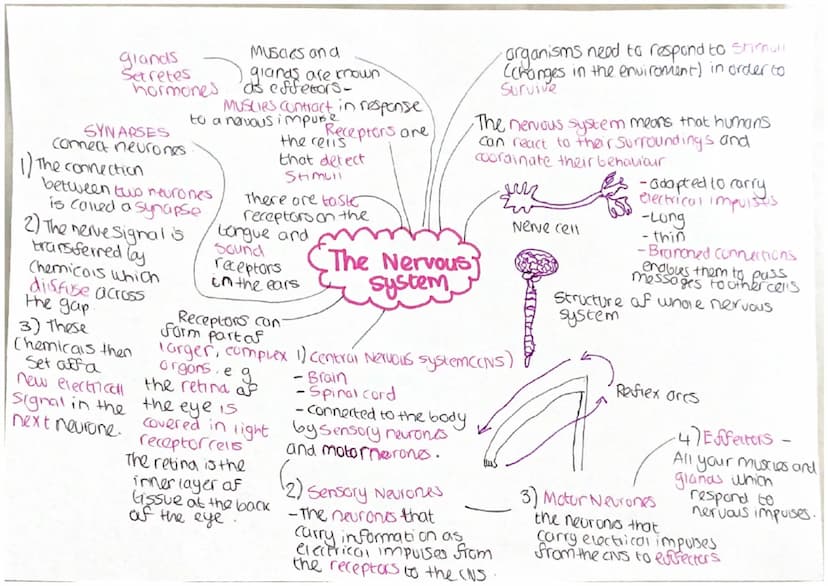 The Nervous
System
organisms need to respond to stimuli
(changes in the enviroment) in order to
survive
The nervous system means that humans
can react to their surroundings and
coordinate their behaviour
Nerve cell
- adapted to carry
electrical impulses
- Long
- thin
- Branched connections
enables them to pass
messages to other cells
Structure of whole nervous
system
Reflex arcs
1) Central Nervous System (CNS)
- Brain
- Spinal cord
- connected to the body
by sensory neurones
and motor nerones.
2) Sensory Neurones
- The neurones that
carry information as
electrical impulses from
the receptors to the CNS.
3) Motor Neurones
the neurons that
carry electrical impulses
from the CNS to effectors
4) Effectors -
All your muscles and
glands which
respond to
nervous impulses.
Receptors can
form part of
larger, complex
organs. e g
the retina of
the eye is
covered in light
receptor cells
The retina is the
inner layer of
tissue at the back
of the eye.
SYNAPSES
connect neurones
1) The connection
between two neurones
is called a synapse
2) The nerve signal is
transferred by
chemicals which
diffuse across
the gap
3) These
chemicals then
set off a
new electrical
signal in the
next neurone.
There are taste
receptors on the
tongue and
sound
receptors
in the ears
Receptors are
the cells
that detect
Stimuli
Muscles and
glands are known
as effetors-
Muscles contract in response
to a nervous impulse
glands
secretes
hormones